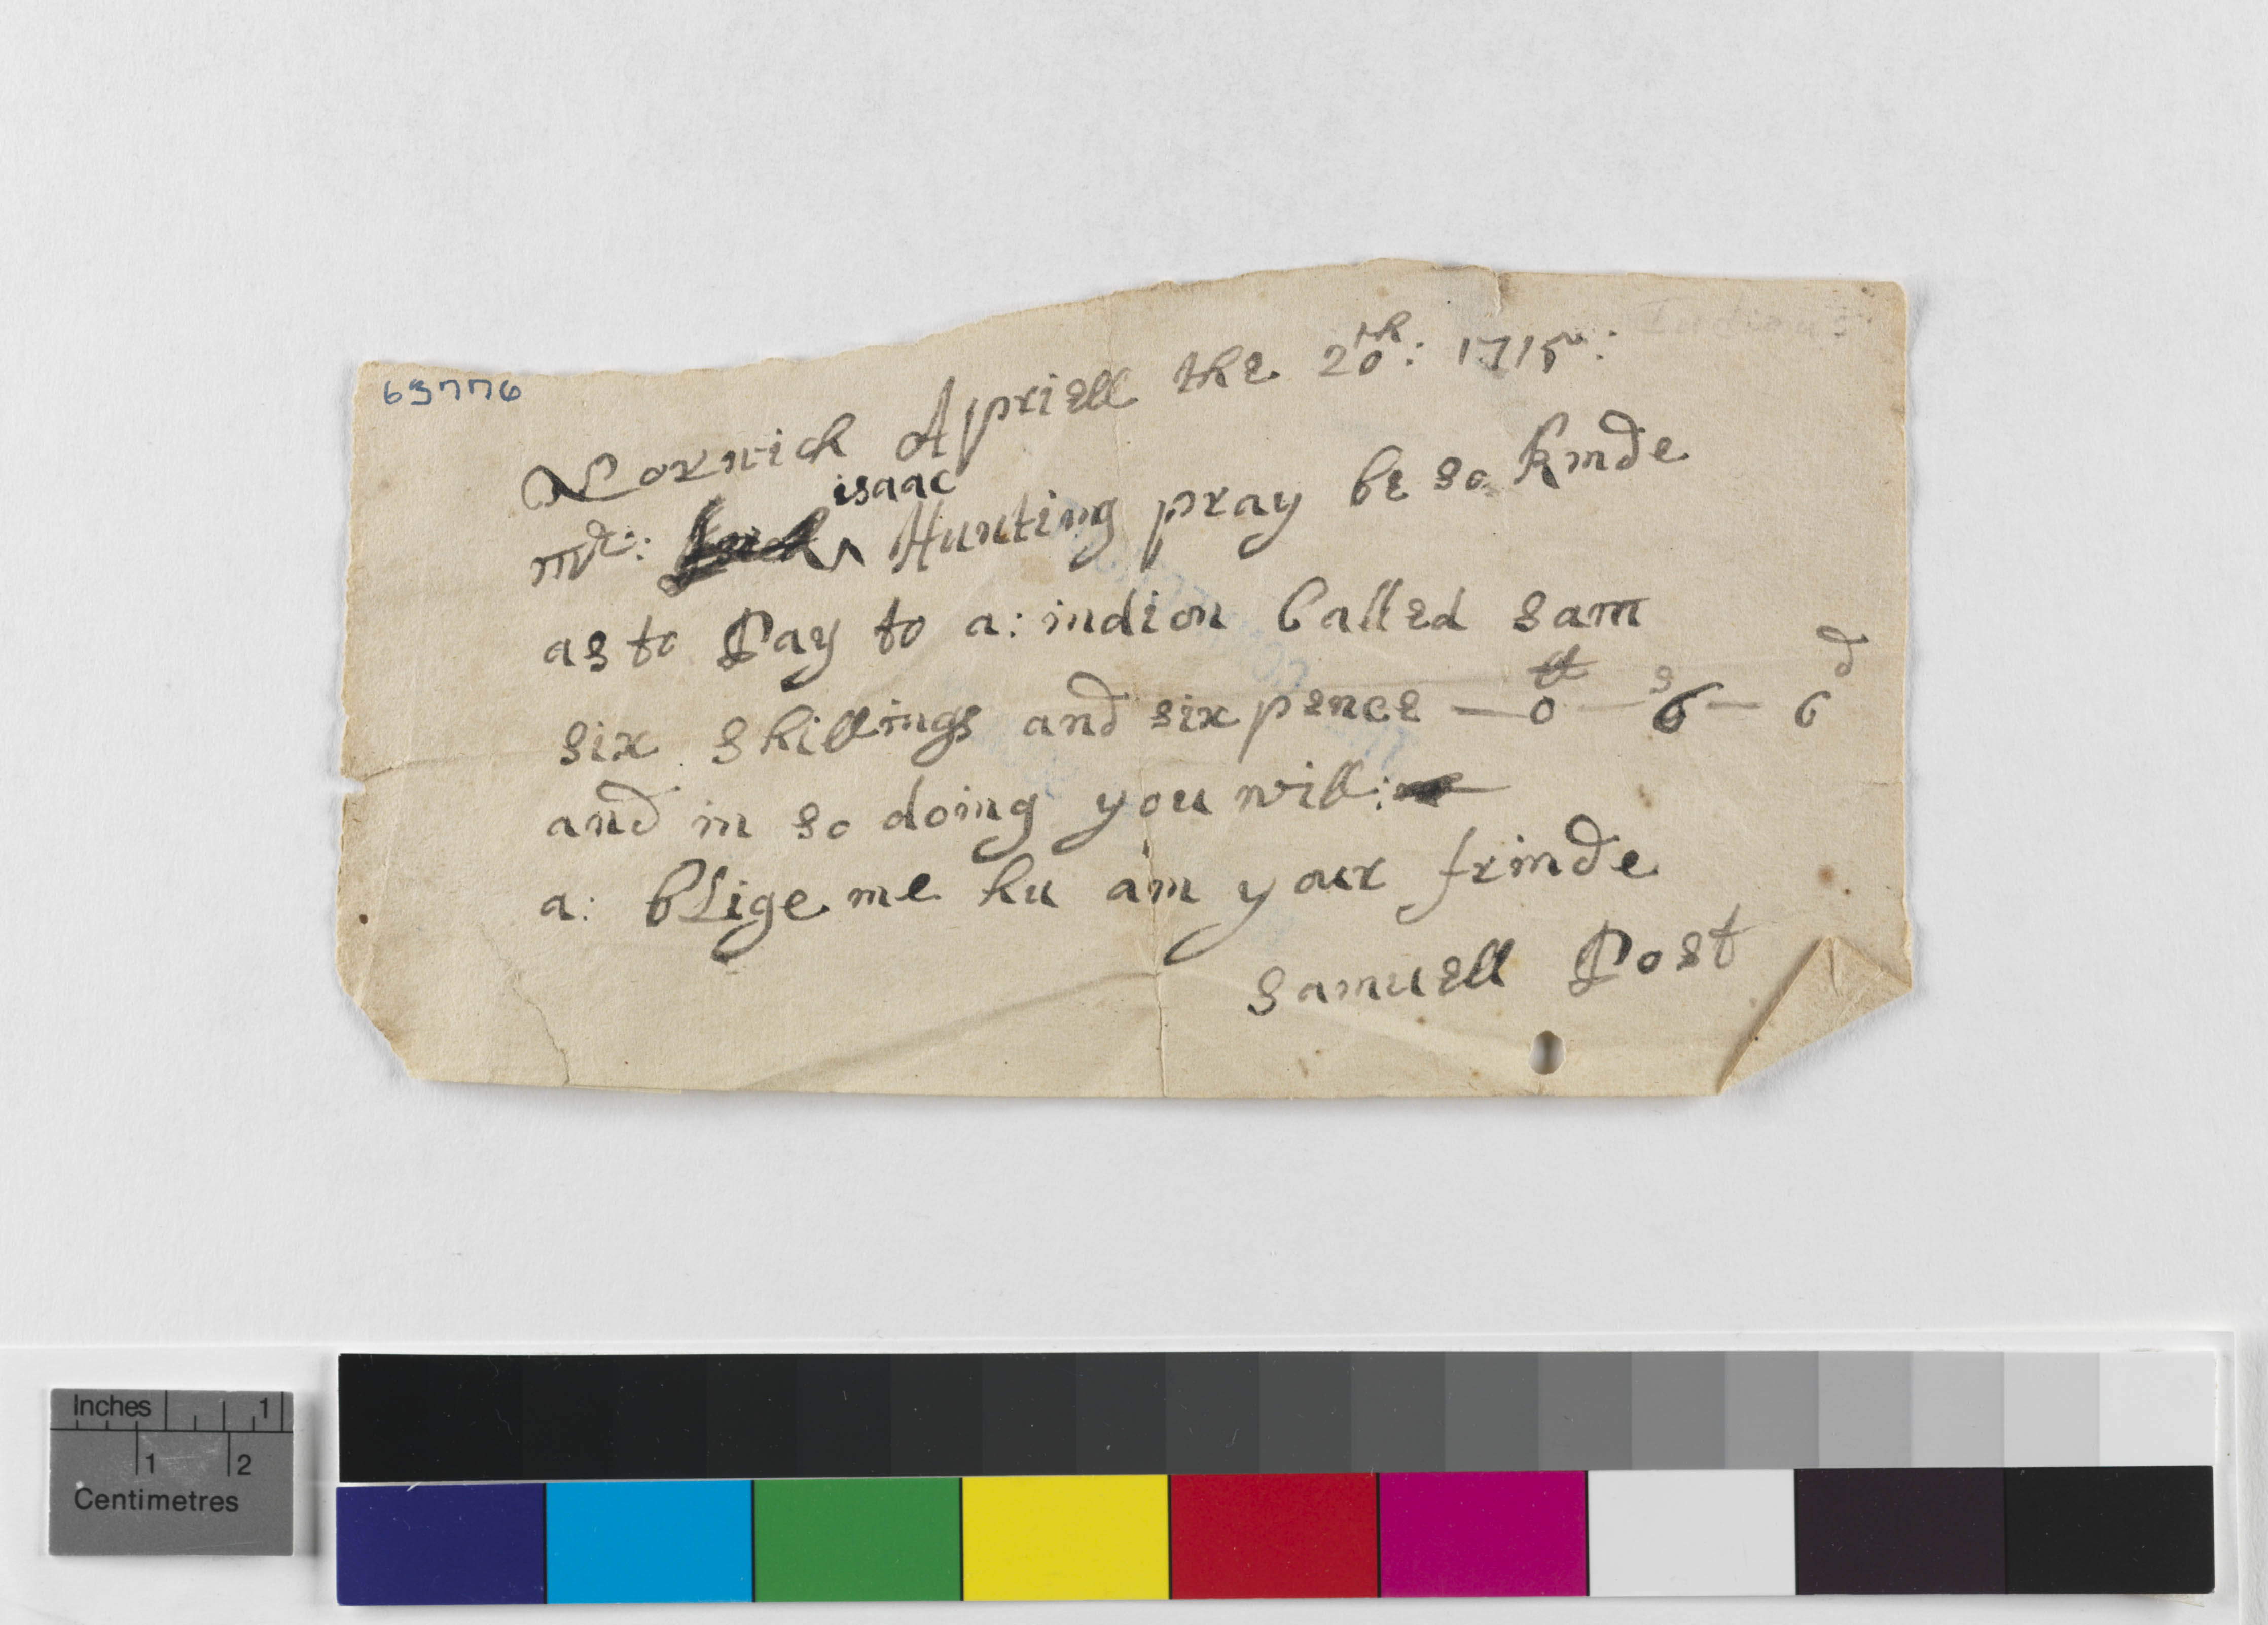 Indians
65776
Norwich Apriell the 20th: 1715:
isaac
mr: ^ Hunting pray be so kinde
as to Pay to a: indion Called sam
six shillings and six pence — 0 — 6s — 6d
and in so doing you will:
a: blige me hu am your frinde
samuell Post
Inches 1
1 2
Centimetres